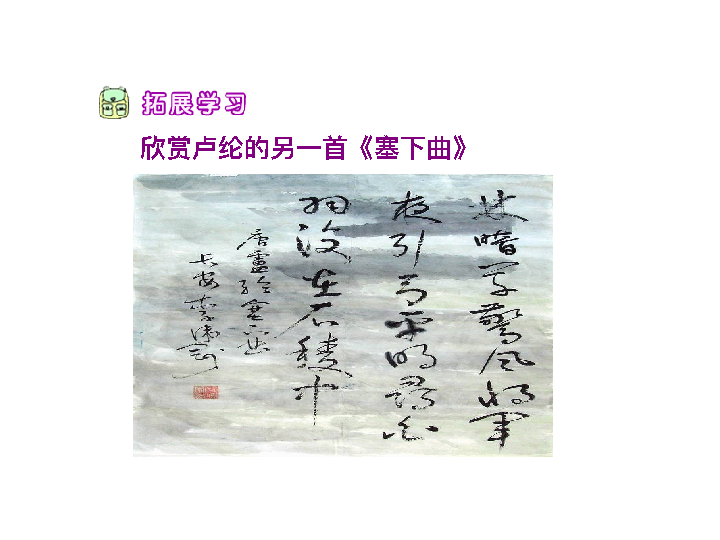 拓展学习
欣赏卢纶的另一首《塞下曲》
林暗草驚風將軍
夜引弓平明尋白
羽没在石稜中
唐盧綸塞下曲
长安